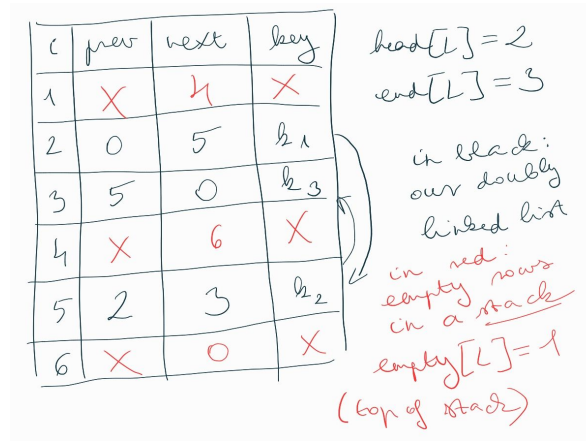 i prev next key
1 X 4 X
2 0 5 k1
3 5 0 k3
4 X 6 X
5 2 3 k2
6 X 0 X
head[L]=2
end[L]=3
in black:
our doubly
linked list
in red:
empty rows
in a stack
empty[L]=1
(top of stack)